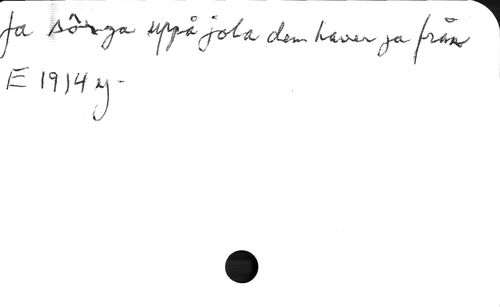 ja sôrga uppå jola dem haver ja från
E 1914 y.